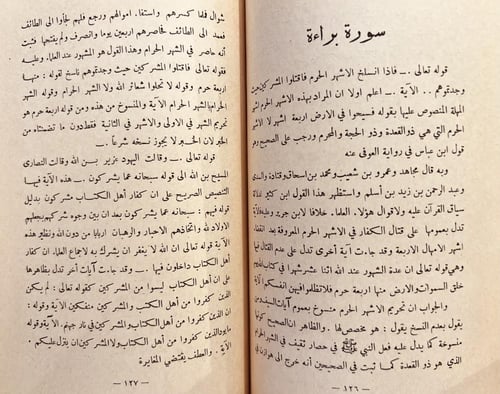 سورة براءة
قوله تعالى ـ فاذا انسلخ الاشهر الحرم فاقتلوا المشركين حيث
وجدتموهم .. الآية ـ اعلم اولا ان المراد بهذه الاشهر الحرم اشهر
المهلة المنصوص عليها بقوله فسيحوا في الارض اربعة اشهر لا الاشهر
الحرم التي هي ذو القعدة وذو الحجة والمحرم ورجب على الصحيح وهو
قول ابن عباس في رواية العوفى عنه
وبه قال مجاهد وعمرو بن شعيب ومحمد بن اسحاق وقتادة والسدى
وعبد الرحمن بن زيد بن أسلم واستظهر هذا القول ابن كثير لدلالة
سياق القرآن عليه ولاقوال هؤلاء العلماء خلافا لابن جرير وعليه فالآية
تدل بعمومها على قتال الكفار في الاشهر الحرم المعروفة بعد انقضاء
اشهر الامهال الاربعة وقد جاءت آية أخرى تدل على عدم القتال فيها
وهي قوله تعالى ان عدة الشهور عند الله اثنا عشر شهرا في كتاب الله يوم
خلق السموات والارض منها اربعة حرم فلا تظلموا فيهن أنفسكم
والجواب ان تحريم الاشهر الحرم منسوخ بعموم آيات السيف ومن
يقول بعدم النسخ يقول : هو مخصص لها . والظاهر ان الصحيح كونها
منسوخة كما يدل عليه فعل النبي ﷺ في حصار ثقيف في الشهر الحرام
الذي هو ذو القعدة كما ثبت في الصحيحين أنه خرج الى هوازن في
ـ ١٢٦ ـ
شوال فلما كسرهم واستفاء اموالهم ورجع فلهم لجأوا الى الطائف
فعمد الى الطائف فحاصرهم اربعين يوما وانصرف ولم يفتحها فثبت
أنه حاصر في الشهر الحرام وهذا القول هو المشهور عند العلماء وعليه
فقوله تعالى فاقتلوا المشركين حيث وجدتموهم ناسخ لقوله : منها
اربعة حرم وقوله لا تحلوا شعائر الله ولا الشهر الحرام وقوله الشهر
الحرام بالشهر الحرام الآية والمنسوخ من هذه ومن قوله اربعة حرم هو
تحريم الشهر في الاولى والاشهر في الثانية فقط دون ما تضمنتاه من
الخبر لان الخبر لا يجوز نسخه شرعا .
قوله تعالى ـ وقالت اليهود عزير بن الله وقالت النصارى
المسيح بن الله الى قوله سبحانه عما يشركون ـ هذه الآية فيها
التنصيص الصريح على ان كفار أهل الكتاب مشركون بدليل
قوله فيهم : سبحانه عما يشركون بعد ان بين وجوه شركهم بجعلهم
الاولاد لله واتخاذهم الاحبار والرهبان اربابا من دون الله ونظير هذه
الآية قوله تعالى ان الله لا يغفر ان يشرك به لاجماع العلماء ان كفار
أهل الكتاب داخلون فيها ـ وقد جاءت آيات أخر تدل بظاهرها
على ان أهل الكتاب ليسوا من المشركين كقوله تعالى : لم يكن
الذين كفروا من أهل الكتب والمشركين منفكين الآية وقوله :
ان الذين كفروا من أهل الكتب والمشركين في نار جهنم . الآية وقوله
ما يود الذين كفروا من أهل الكتب ولا المشركين ان ينزل عليكم .
الآية . والعطف يقتضي المغايرة
ـ ١٢٧ ـ